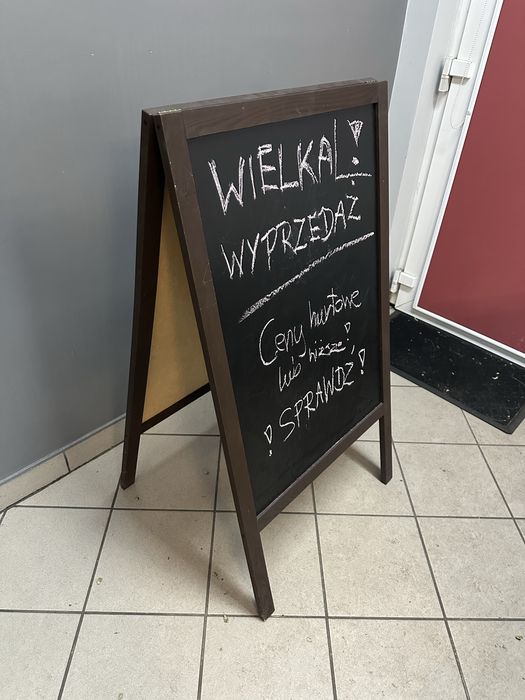 WIELKA!
WYPRZEDAŻ
Ceny hurtowe
lub niższe!
! SPRAWDŹ!